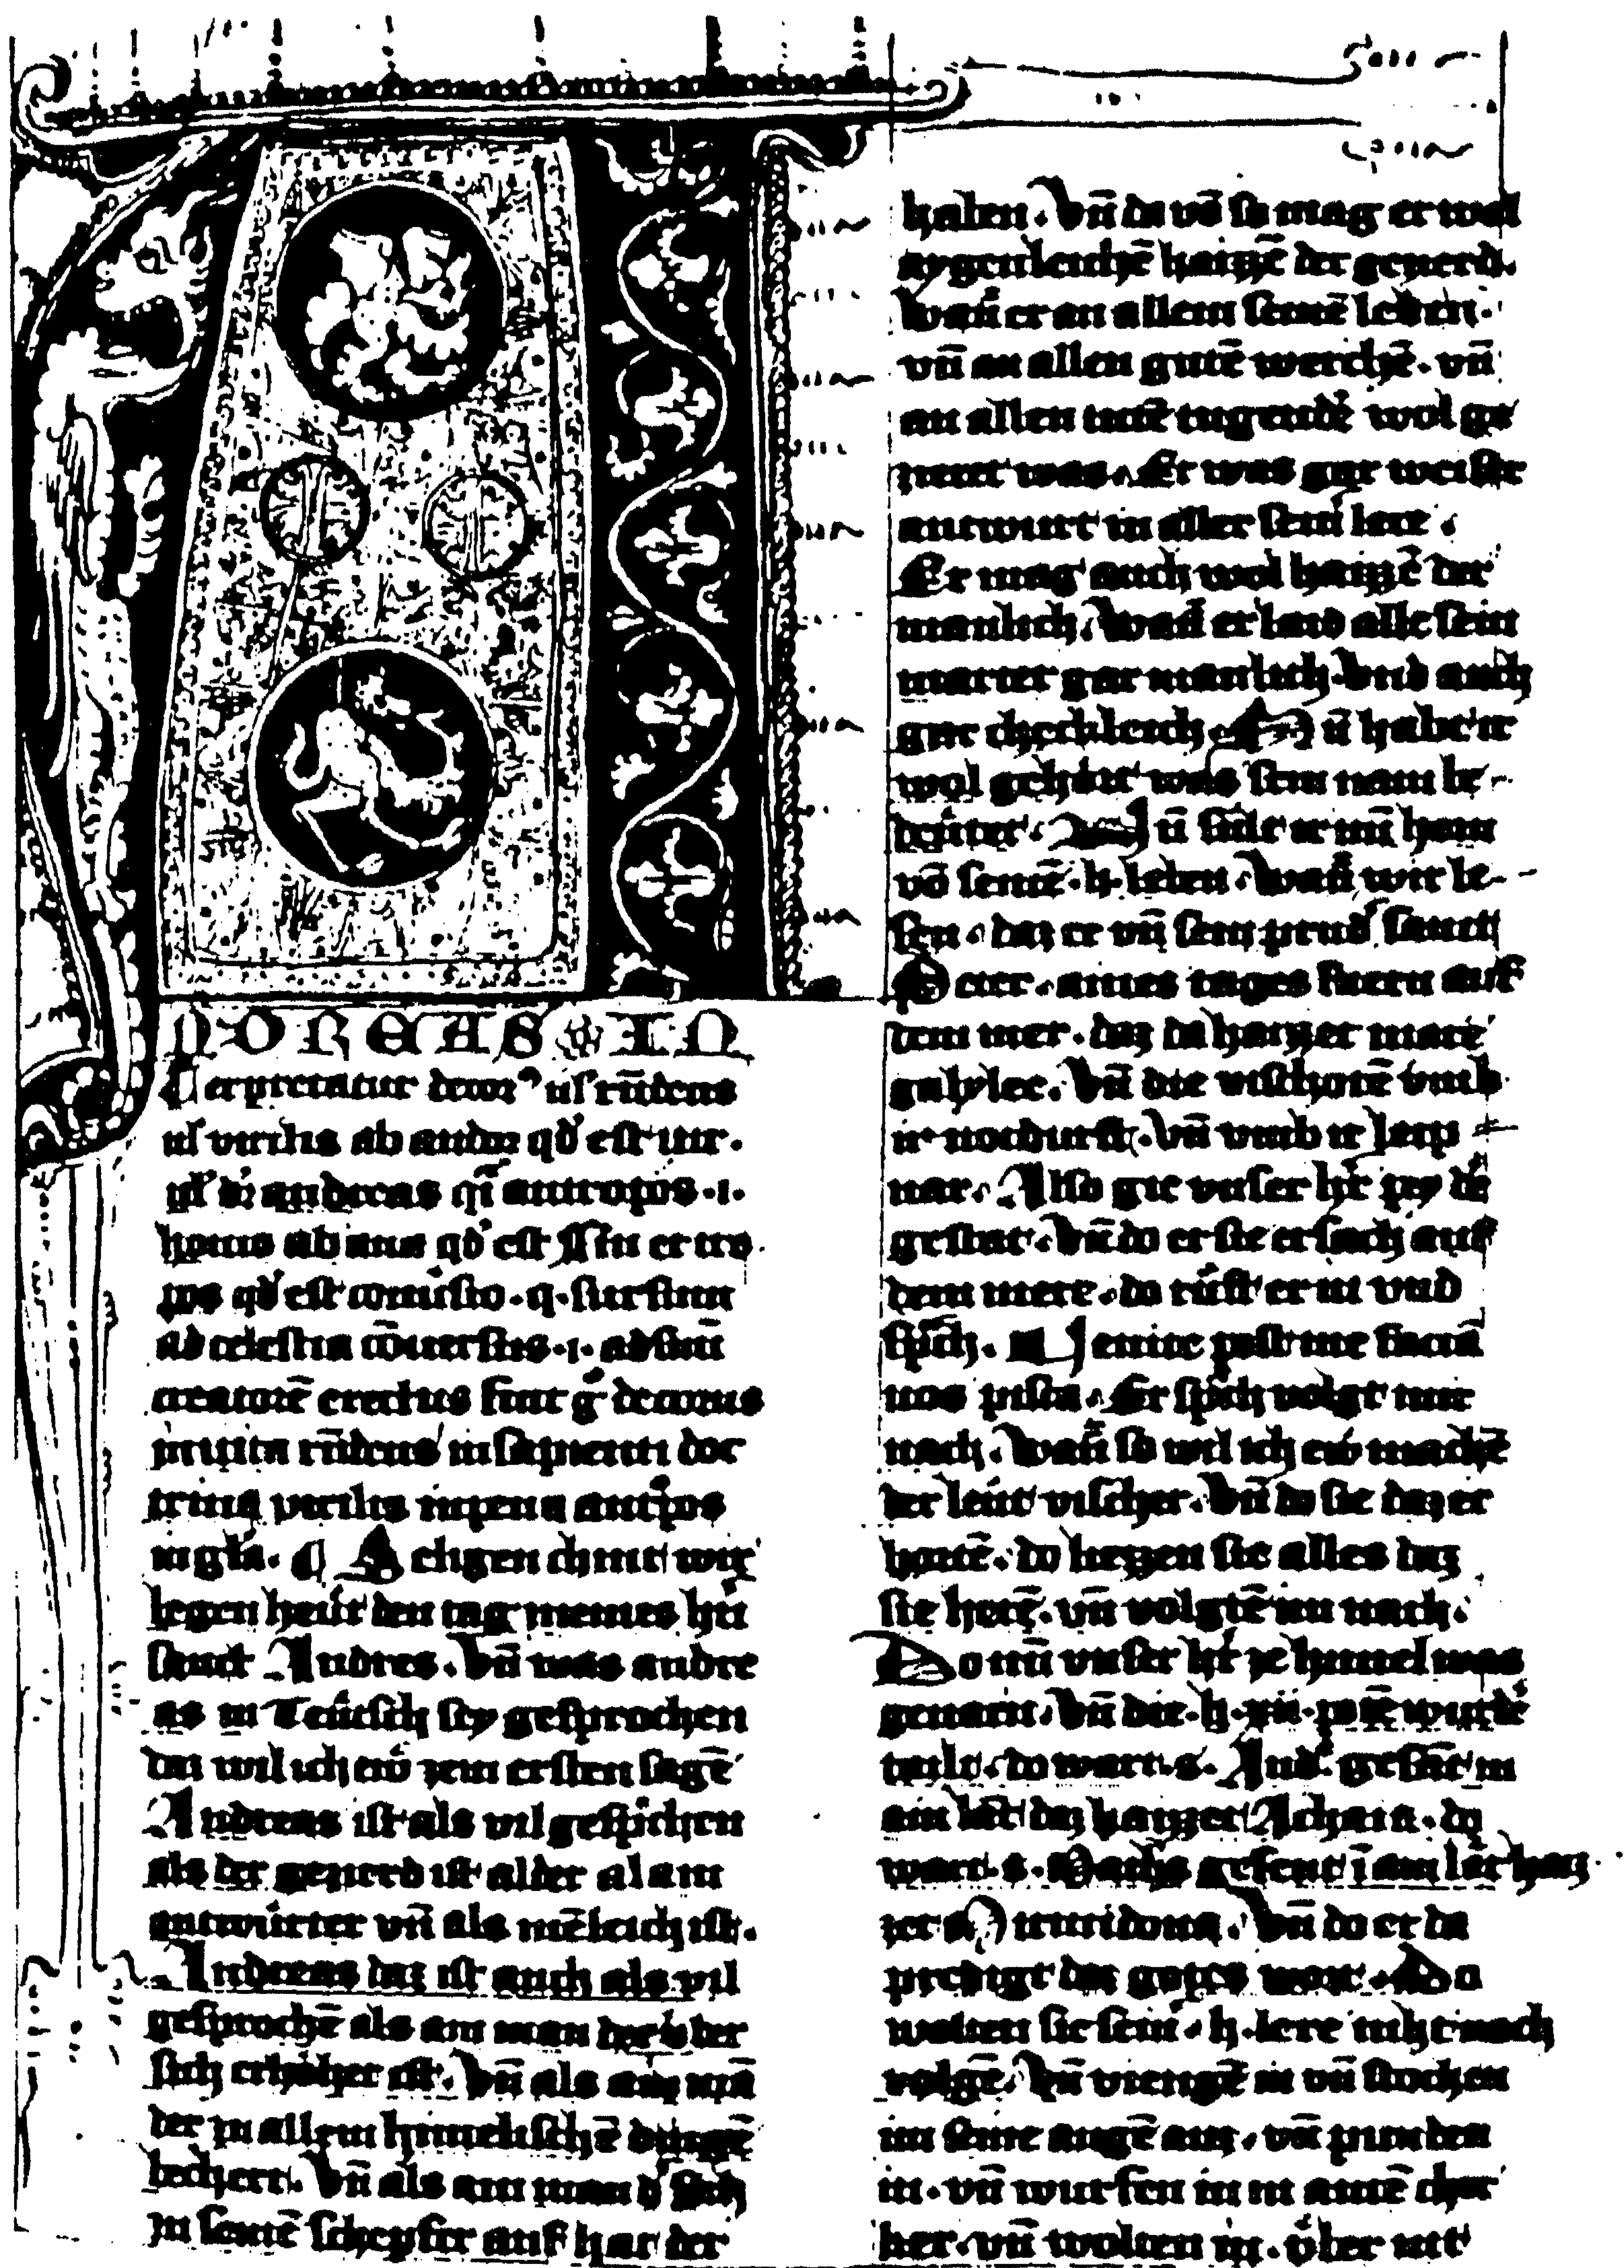 NDREAS IN
terpretatur decor᷒ ul᷒ rn̄dens
ul᷒ virilis ab andor qd᷒ est uir.
ul᷒ dr̄ andreas qi᷒ antropos .i.
homo ab ana qd᷒ est ſuſū et tro
pos qd᷒ est conuᷤſio .q. ſurſum
ad celeſtia cōuerſus .i. ad ſuū
creatorē erectus fuit g᷒ decorus
in uita rn̄dens in ſapienti doc
trina virilis in pena antᷣpos
in gl̄a. ¶ Seligen chint wir
legen heut den tag meines hn̄
ſant Andres. Vn̄ was andre
as in Teutſch ſey geſprochen
daz wil ich ew zem erſten ſagē
Andreas iſt als vil geſpͦchen
als der gezierd iſt alder al ain
antwurter vn̄ als mēleich iſt.
Andreas daz iſt auch als vil
geſprochē als ain man der vber
ſich erhohet iſt. Vn̄ als ain mā
der zu allem himeliſchē dingē
bechert. Vn̄ als ain man d᷒ ſich
zu ſeinē ſchepfer auf hat der
haben. Vn̄ da vō ſo mag er wol
aygenleichē haizzē der gezierd.
wan̄ er an allem ſeinē leben.
vn̄ an allen gutē werchē. vn̄
an allen ſeinē tugendē wol ge
zieret was. Er was gar weiſer
antwurt in aller ſein᷒ lere.
Er mag auch wol haizzē der
manlich. wan̄ er laid alle ſein
marter gar manlich. Vnd auch
gar checkleich. Nu habt ir
wol gehort was ſein nam be
deutet. Nu ſult ir nu horn
vō ſeinē .h. leben. wan̄ wir le
ſen. daz er vn̄ ſein prud᷒ ſanct
Peter. aines tages fuern auf
dem mer. daz da haizzet mare
galylee. Vn̄ die viſchotē vmb
ir notdurft. Vn̄ vmb ir leip
nar. Alſo gie vnſer hr̄ pey dē
geſtat. Vn̄ do er ſie erſach auf
dem mere. do ruft er in vnd
ſpͣch. Uenite poſt me faciā
uos piſca. Er ſpͣch volgt mir
nach. wan̄ ſo wil ich ew machē
der leut viſcher. Vn̄ do ſie daz er
hortē. do liezzen ſie alles daz
ſie hetē. vn̄ volgtē im nach.
Do nu vnſer hr̄ ze himel was
geuarn. Vn̄ die .h. xii. potē wurdē
tailt. do wart .s. And᷒. geſāt in
ain lāt daz haizzet Achaia. do
wart .s. Math᷒s geſent ī ain lāt haiz
zet Mirmidona. Vn̄ do er da
predigt daz gotes wort. Do
wolten ſie ſein᷒ .h. lere niht nach
volgē. Vn̄ viengē in vn̄ ſtachen
im ſeine augē auz. vn̄ punden
in. vn̄ wurfen in in ainē char
her. vn̄ wolten in. vber nit